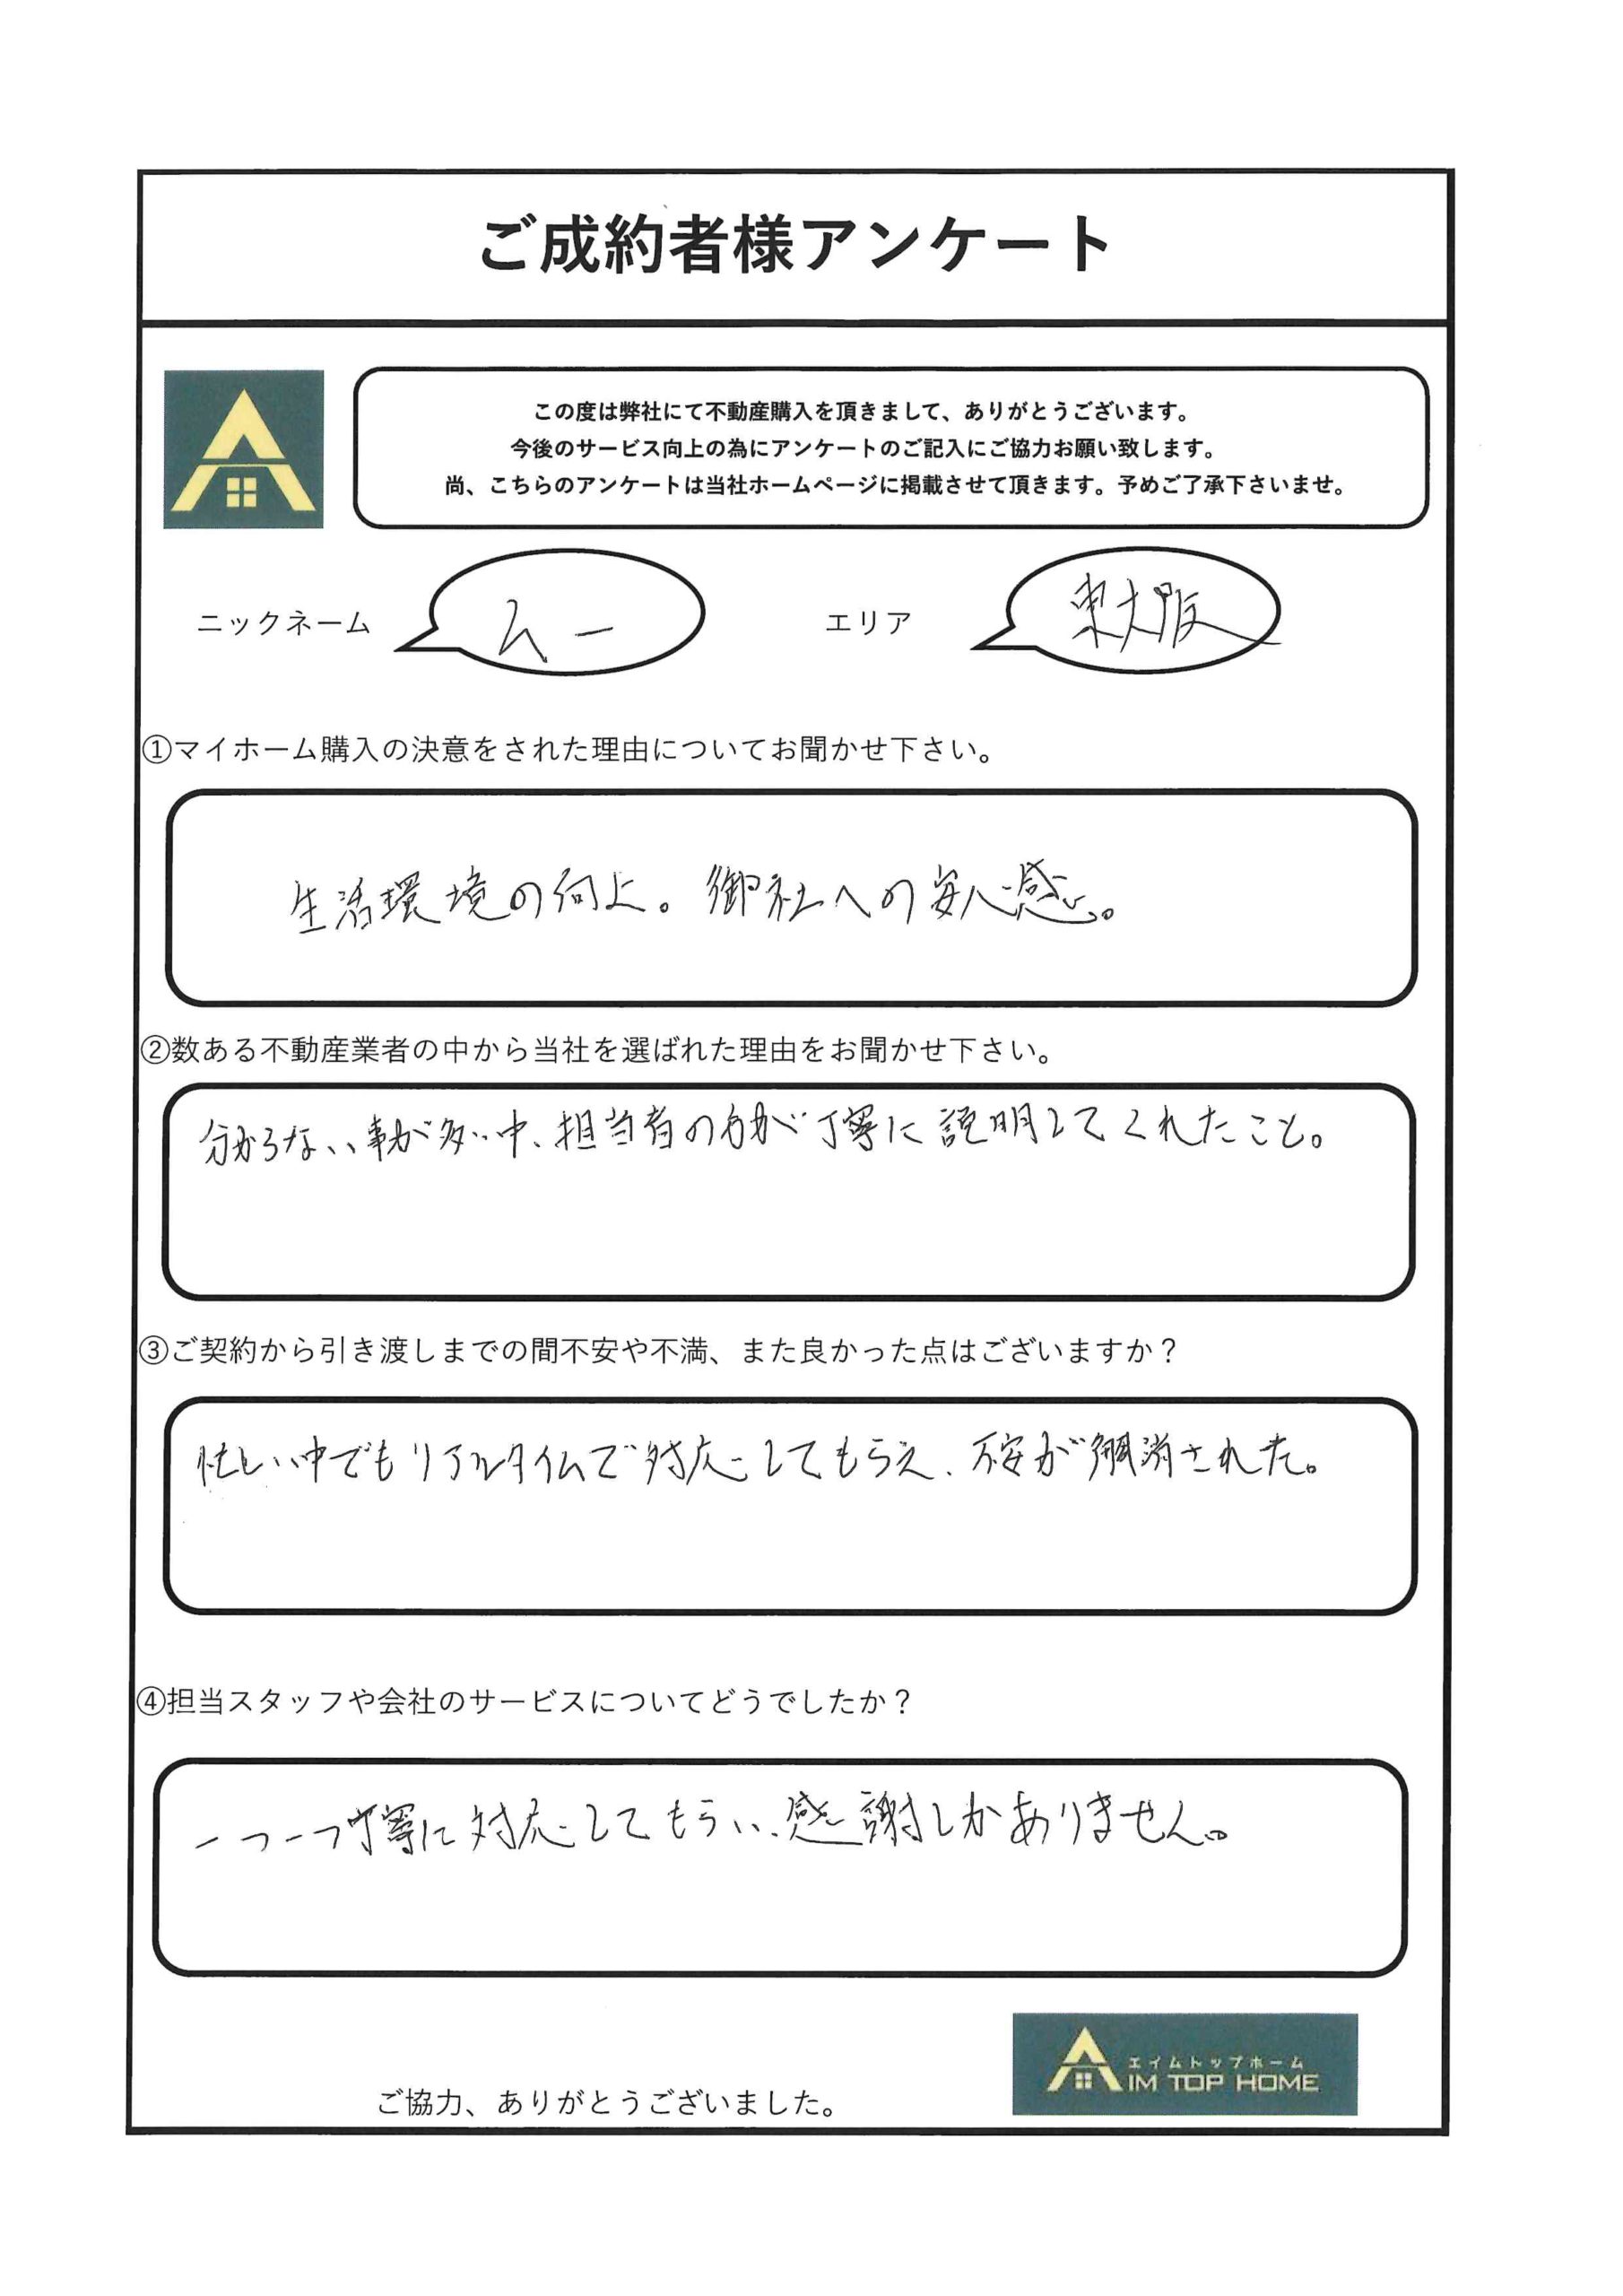 ご成約者様アンケート
この度は弊社にて不動産購入を頂きまして、ありがとうございます。
今後のサービス向上の為にアンケートのご記入にご協力お願い致します。
尚、こちらのアンケートは当社ホームページに掲載させて頂きます。予めご了承下さいませ。
ニックネーム ムー エリア 東大阪
①マイホーム購入の決意をされた理由についてお聞かせ下さい。
生活環境の向上。御社への安心感。
②数ある不動産業者の中から当社を選ばれた理由をお聞かせ下さい。
分からない事が多い中、担当者の方が丁寧に説明してくれたこと。
③ご契約から引き渡しまでの間不安や不満、また良かった点はございますか？
忙しい中でもリアルタイムで対応してもらえ、不安が解消された。
④担当スタッフや会社のサービスについてどうでしたか？
一つ一つ丁寧に対応してもらい、感謝しかありません。
エイムトップホーム
AIM TOP HOME
ご協力、ありがとうございました。